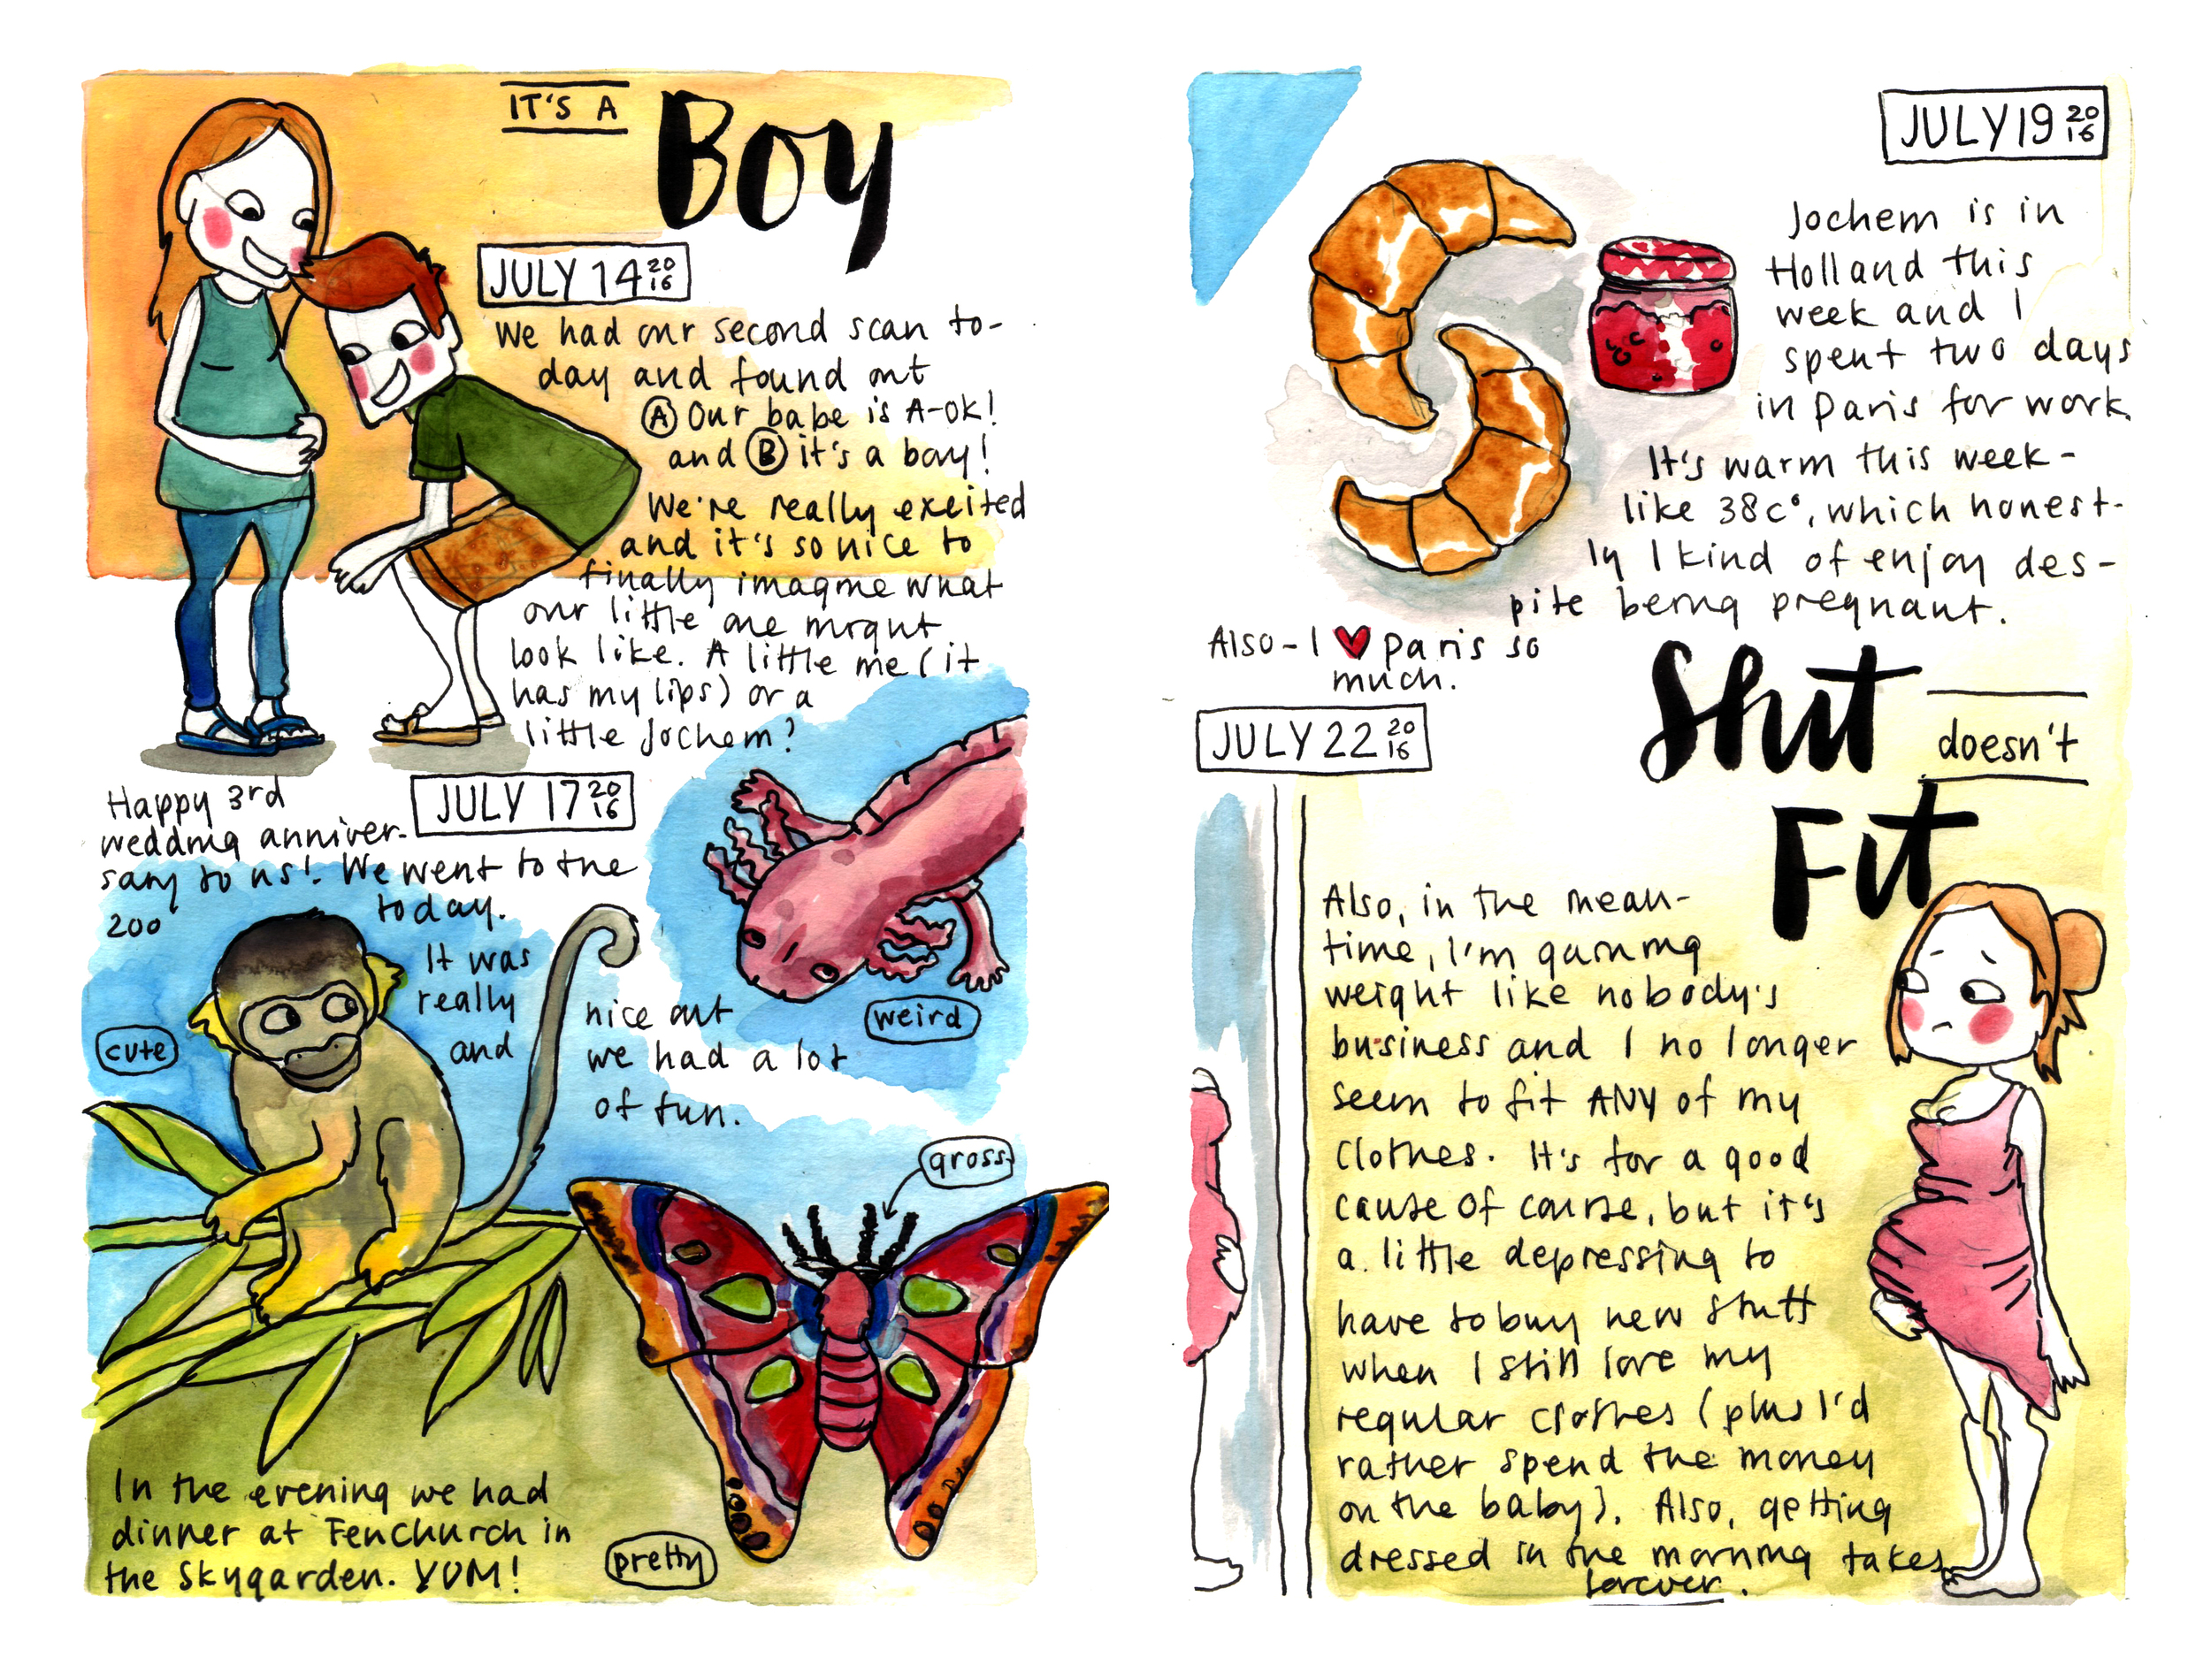 IT'S A
Boy
JULY 14 2016
We had our second scan to-
day and found out
Ⓐ Our babe is A-OK!
and Ⓑ it's a boy!
We're really excited
and it's so nice to
finally imagine what
our little one might
look like. A little me (it
has my lips) or a
little Jochem?
JULY 17 2016
Happy 3rd
wedding anniver-
sary to us! We went to the
zoo today.
It was
really nice out
and we had a lot
of fun.
cute
weird
gross
pretty
In the evening we had
dinner at Fenchurch in
the Skygarden. YUM!
JULY 19 2016
Jochem is in
Holland this
week and I
spent two days
in Paris for work.
It's warm this week -
like 38c°, which honest-
ly I kind of enjoy des-
pite being pregnant.
Also - I ♥ Paris so
much.
JULY 22 2016
Shit
doesn't
Fit
Also, in the mean-
time, I'm gaining
weight like nobody's
business and I no longer
seem to fit ANY of my
clothes. It's for a good
cause of course, but it's
a little depressing to
have to buy new stuff
when I still love my
regular clothes (plus I'd
rather spend the money
on the baby). Also, getting
dressed in the morning takes
forever.